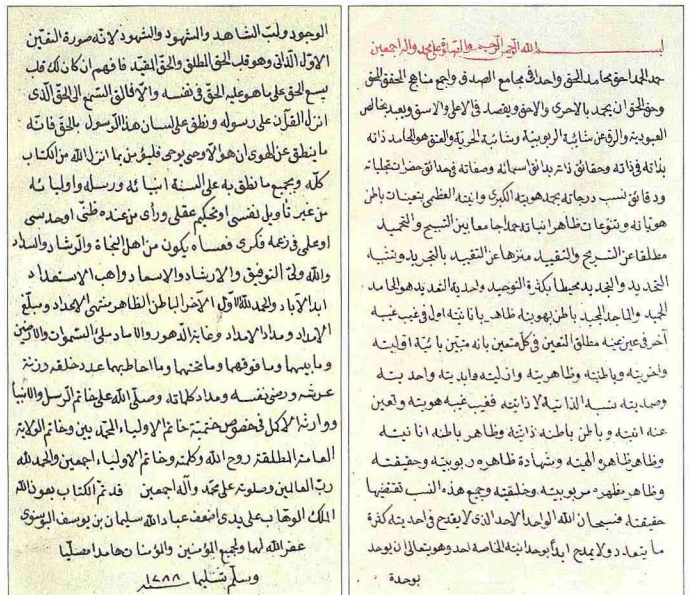 بسم الله الرحمن الرحيم والصلوة على محمد واله اجمعين
حمد الحمد احق محامد الحق واحد فى مجامع الصدق واجمع مناهج الحقق الحق
وحق الحق ان يحمد بالاحرى والاحق ويقصد فى الاعلى والاسبق ويعبد بخالص
العبودية والرق عن شائبة الربوبية وشائبة الحرية والعتق هو الحامد ذاته
بذاته فى ذاته وحقائق ذاته بدائق اسمائه وصفاته فى حدائق حضرات تجلياته
ودقائق نسب درجاته بحمد هويته الكبرى وانيته العظمى بتعينات باطن
هوياته وبتنوعات ظاهر انياته حمدا جامعا بين التسبيح والتحميد
مطلقا عن التسريح والتقييد منزها عن التقييد بالتجريد وتشبيه
التحديد والتجديد محيطا بكثرة التوحيد واحدية التعديد هو الحامد
الحميد والماجد المجيد باطن بهويته ظاهر بانانيته اول فى غيب غيبه
آخر فى عين عينه مطلق التعين فى كل متعين بانه متبين بائية اوليته
واخريته وباطنيته وظاهريته وازليته وابديته واحديته
وصمديته نسبه الذاتية لا ذاتيته فغيب غيبه هويته وتعين
عنه انيته وباطن باطنه ذاتيته وظاهر باطنه انانيته
وظاهر ظاهره الهيته وشهادة ظاهره ربوبيته وحقيقته
وظاهر مظهره مربوبيته وخلقيته وجميع هذه النسب تقتضيها
حقيقته فسبحان الله الواحد الاحد الذى لا يقدح فى احديته كثرة
ما يتعدد ولا يمدح ابدا بوحدانيته الخاصة احد وهو يتعالى ان يوحد
بوحدة
الوجود ولب الشاهد والمشهود والشهود لانه صورة التعين
الاول الذاتى وهو قلب الحق المطلق والحق المقيد فافهم ان كان لك قلب
يسع الحق على ما هو عليه الحق فى نفسه والا فالق السمع الى الحق الذى
انزل القرآن على رسوله ونطق على لسان هذا الرسول بالحق فانه
ما ينطق عن الهوى ان هو الا وحى يوحى فليؤمن بما انزل الله من الكتاب
كله وبجميع ما نطق به على السنة انبيائه ورسله واوليائه
من غير تأويل نفسى او تحكيم عقلى ورأى من عنده ظنى او حدسى
او على فى زعمه فكرى فعساه يكون من اهل النجاة والرشاد والسداد
والله ولى التوفيق والارشاد والاسعاد واهب الاستعداد
ابد الآباد والحمد لله الاول الآخر الباطن الظاهر منتهى الاعداد ومبلغ
الامداد ومداد الامداد وغاية الدهور والآماد ملئ السموات والارضين
وما بينهما وما فوقهما وما تحتهما وما احاط بهما عدد خلقه وزنة
عرشه ورضى نفسه ومداد كلماته وصلى الله على خاتم الرسل والانبيا
ووارثه الاكمل فى خصوص ختمية خاتم الاولياء المحمديين وخاتم الولاية
العامة المطلقة روح الله وكلمته وخاتم الاولياء اجمعين والحمد لله
رب العالمين وصلوته على محمد وآله اجمعين قد تم الكتاب بعون الله
الملك الوهاب على يدى اضعف عباد الله سليمان بن يوسف البوسنوى
غفر الله لهما ولجميع المؤمنين والمؤمنات حامدا مصليا
وسلم تسليما